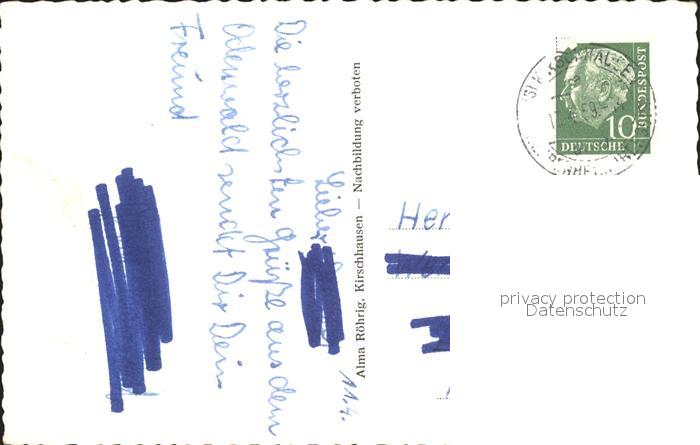 11.4.
Lieber
Die herzlichsten Grüße aus dem
Odenwald sendet Dir Dein
Freund
Alma Röhrig, Kirschhausen — Nachbildung verboten
Her
10
DEUTSCHE
BUNDESPOST
privacy protection
Datenschutz